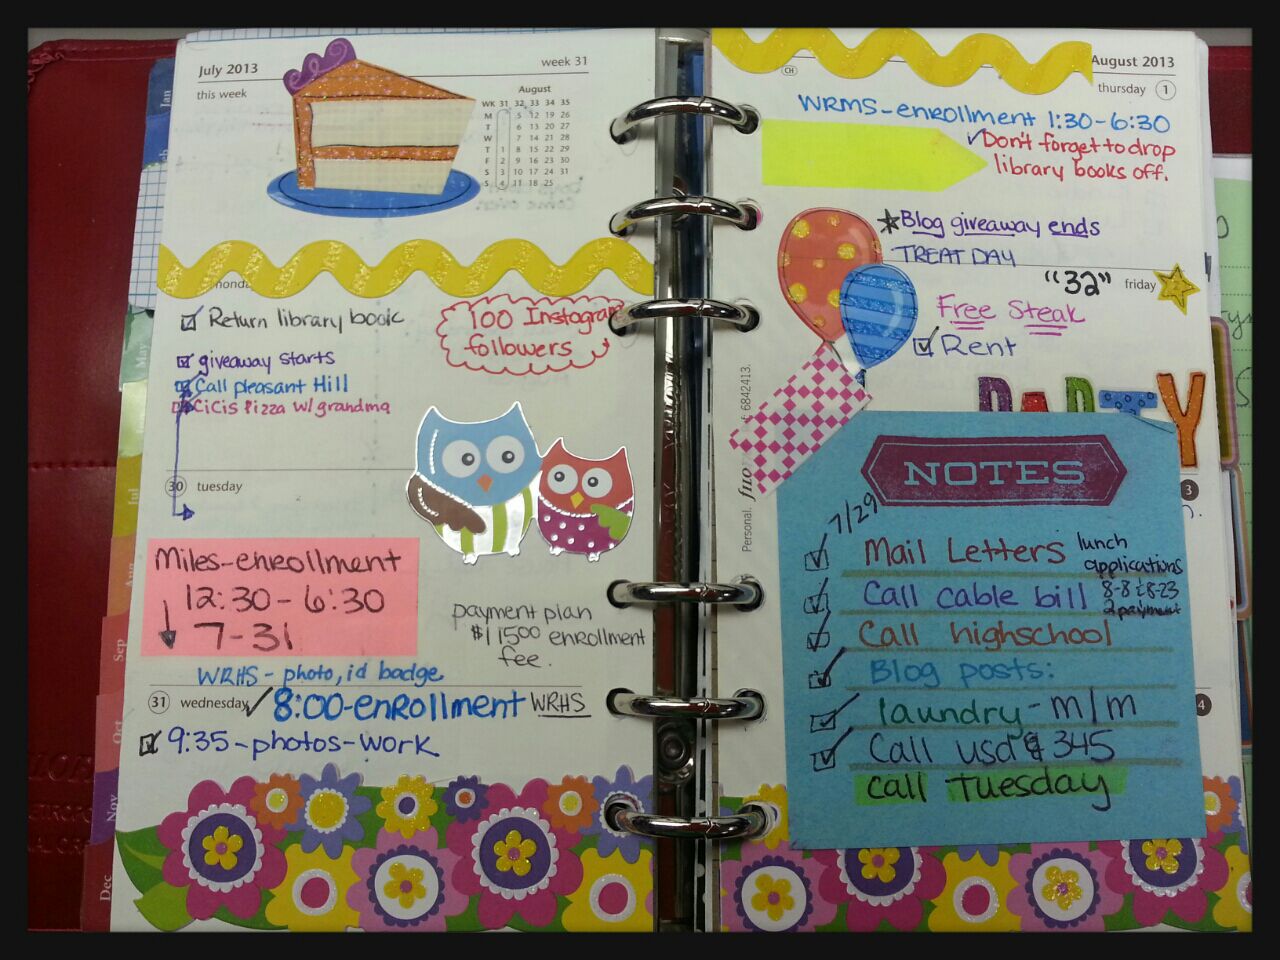 July 2013
week 31
this week
August
WK 31 32 33 34 35
M 5 12 19 26
T 6 13 20 27
W 7 14 21 28
T 1 8 15 22 29
F 2 9 16 23 30
S 3 10 17 24 31
S 4 11 18 25
Return library book
100 Instagram
followers
giveaway starts
Call pleasant Hill
CiCis Pizza w/grandma
30 tuesday
Miles-enrollment
12:30-6:30
7-31
payment plan
$115.00 enrollment
fee.
WRHS - photo, id badge
31 wednesday
8:00-enrollment WRHS
9:35-photos-work
August 2013
CH
thursday 1
WRMS-enrollment 1:30-6:30
Don't forget to drop
library books off.
Blog giveaway ends
TREAT DAY
"32"
friday
Free Steak
Rent
PARTY
NOTES
7/29
Mail Letters lunch
applications
Call cable bill 8-8 & 8-23
2 payment
Call highschool
Blog posts:
laundry - m/m
Call usd & 345
call Tuesday
Personal.
6842413.
3
4
Jan
May
Jul
Aug
Sep
Oct
Nov
Dec